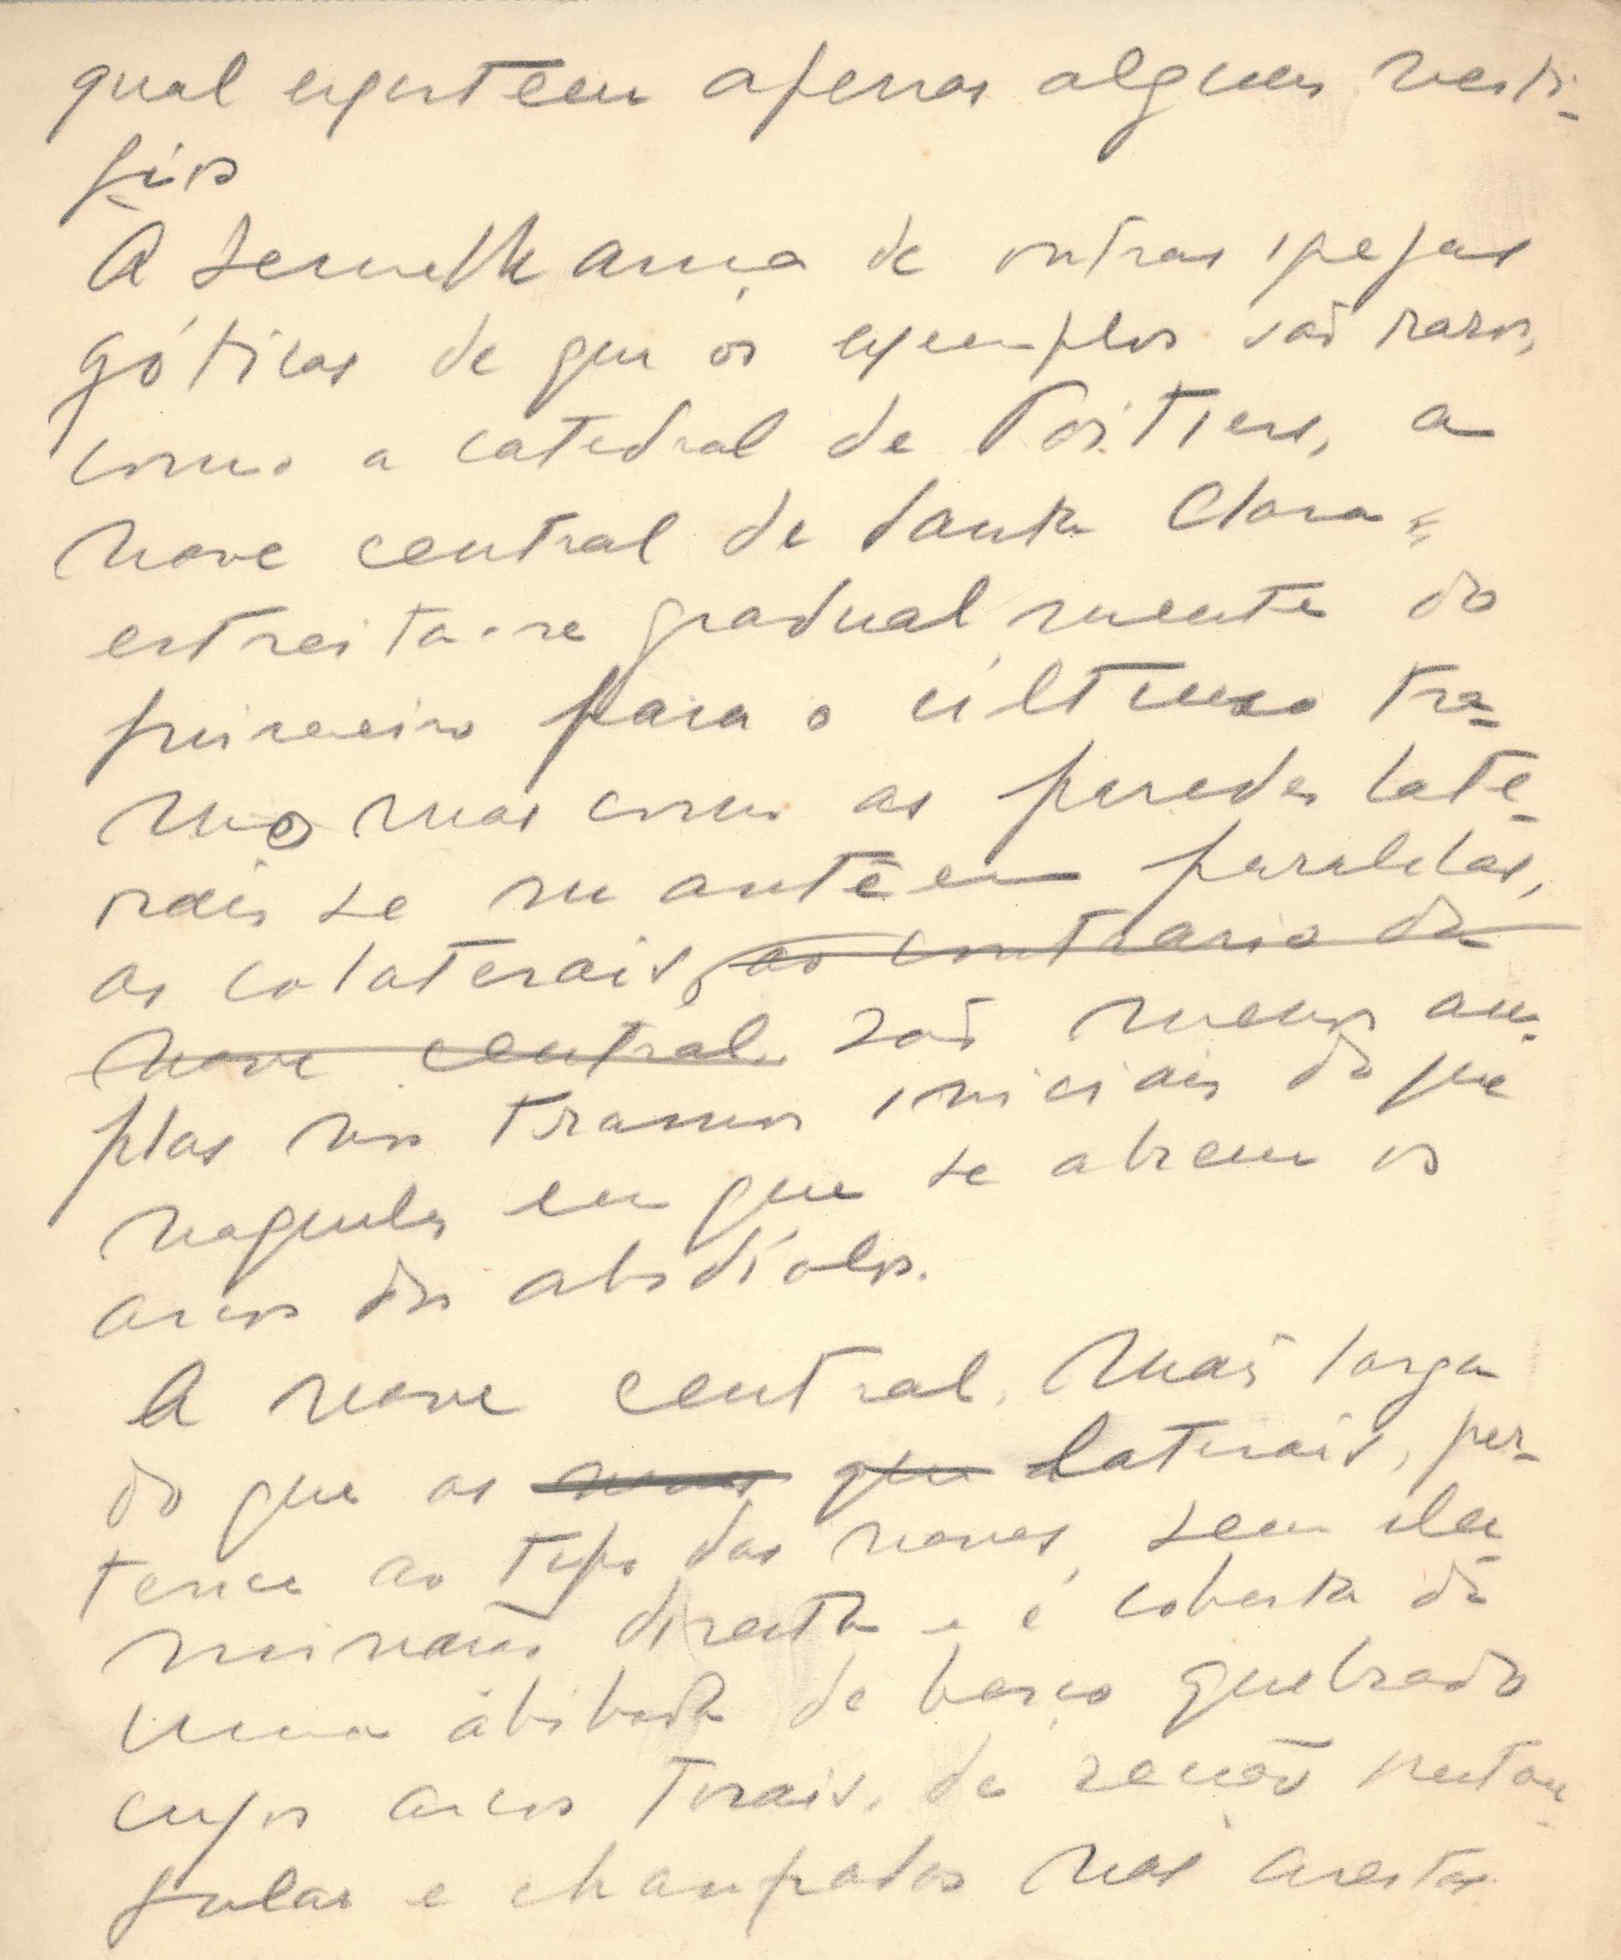 qual existem apenas alguns vestí-
gios
A semelhança de outras igrejas
góticas de que os exemplos são raros,
como a catedral de Poitiers, a
nave central de Santa Clara
estreita-se gradualmente do
primeiro para o último tra-
mo mas como as paredes late-
rais se mantêem paralelas,
as colaterais, ao contrario da
nave central são menos am-
plas nos tramos iniciais do que
naqueles em que se abrem os
arcos dos absidíolos.
A nave central, mais larga
do que as que laterais, per-
tence ao tipo das naves sem ilu-
minação directa e é coberta da
uma abóbada de berço quebrado
cujos arcos torais, de secção rectan-
gular e chanfrados nas arestas